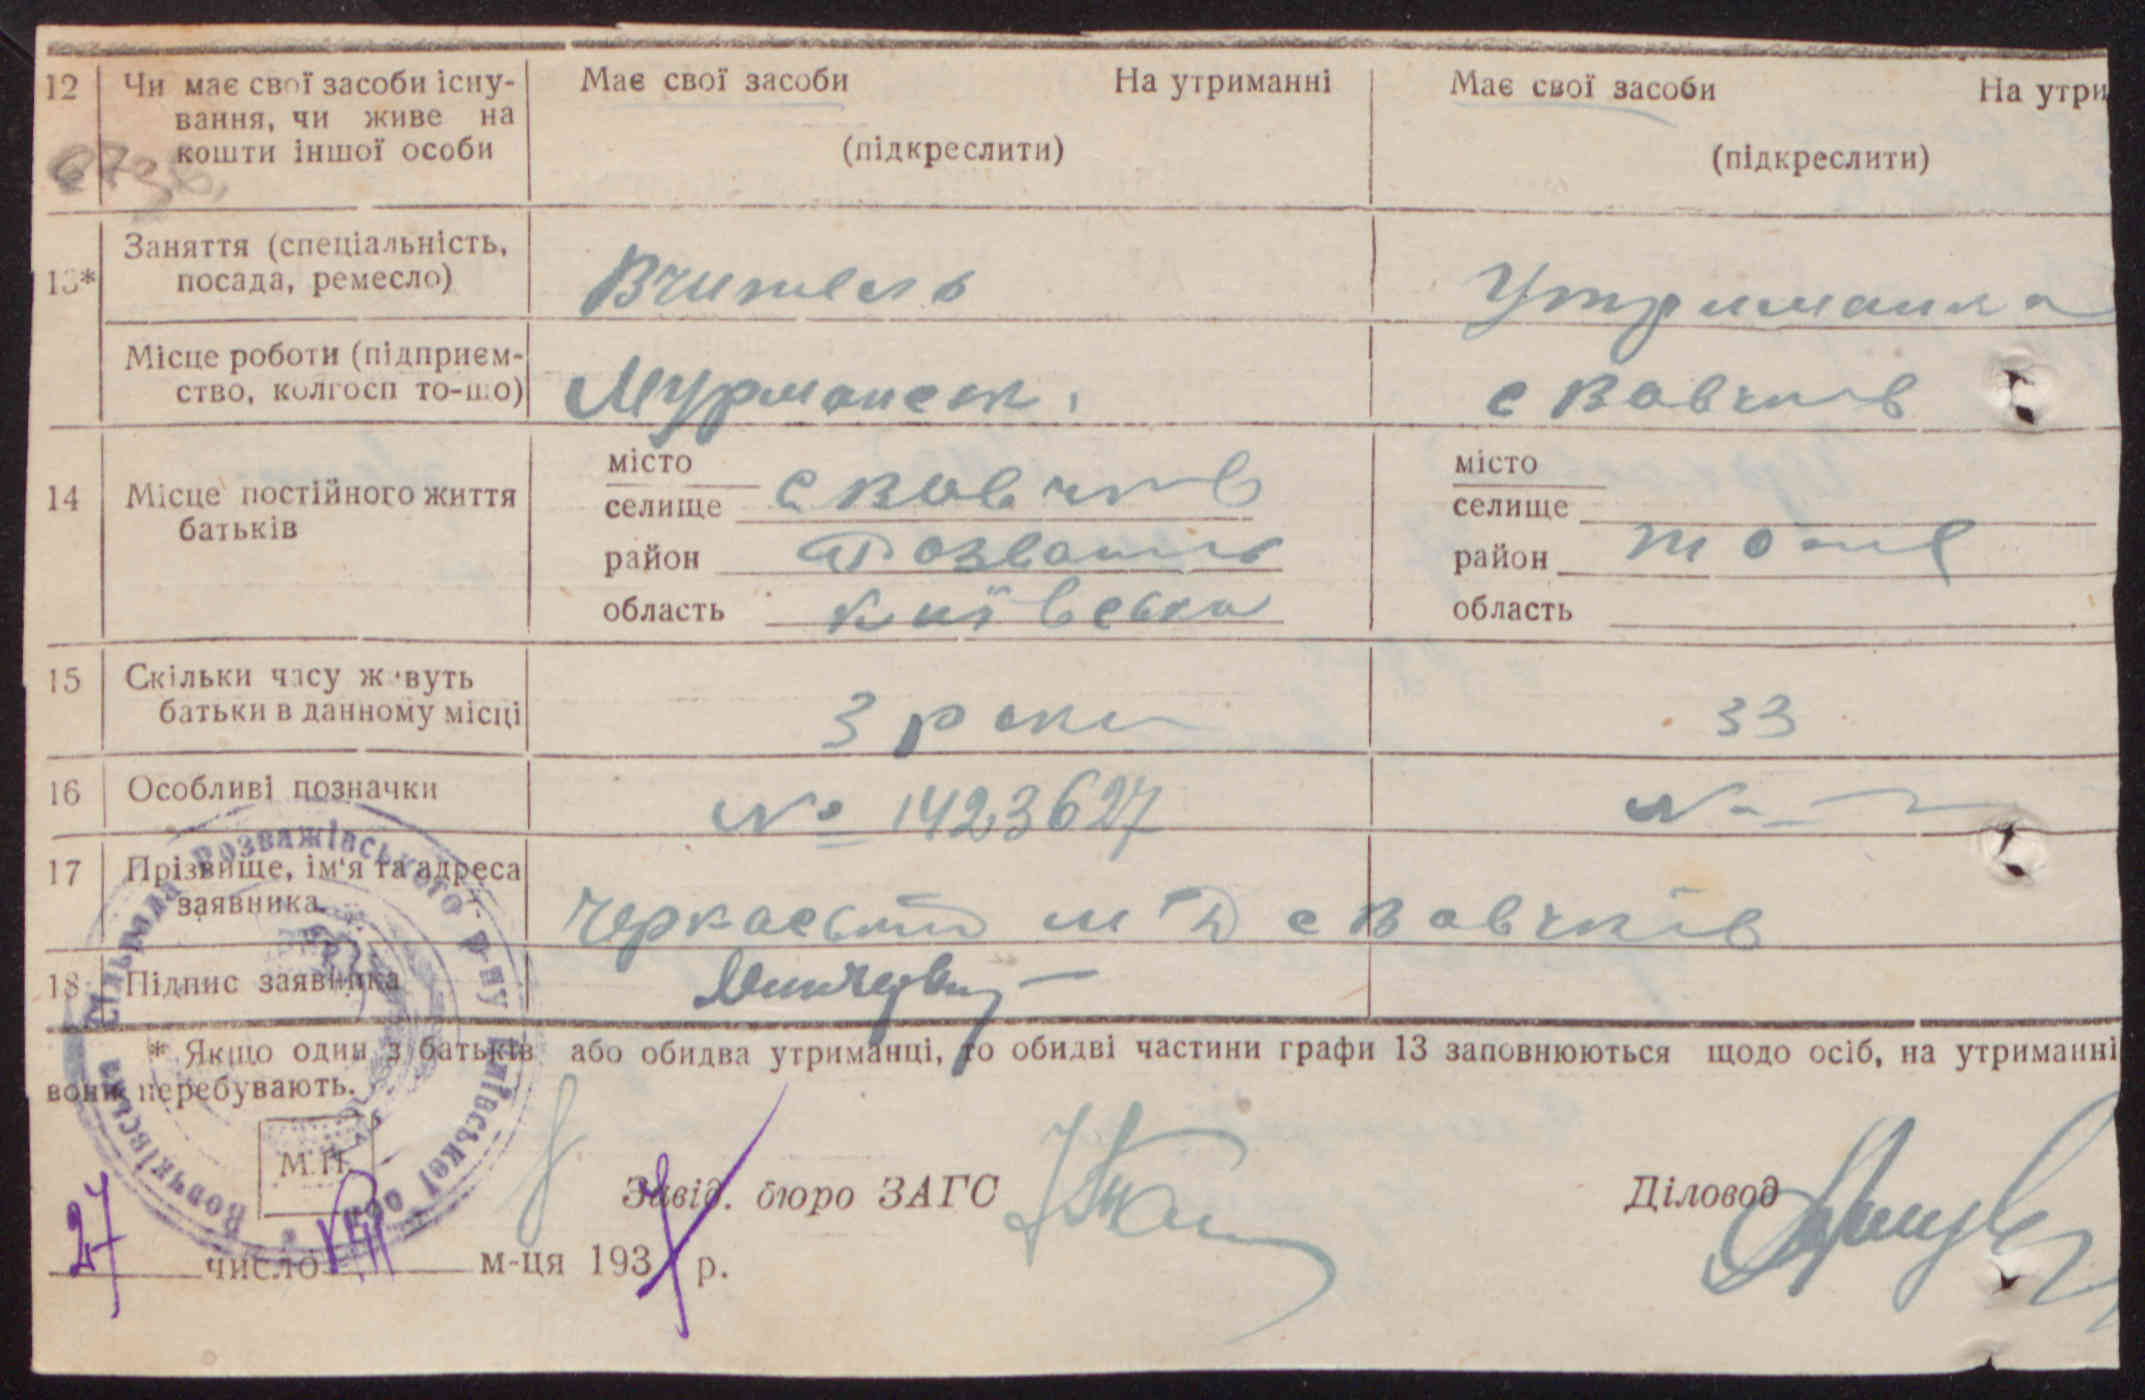 12 Чи має свої засоби існу- Має свої засоби На утриманні Має свої засоби На утри
вання, чи живе на
кошти іншої особи (підкреслити) (підкреслити)
13* Заняття (спеціальність,
посада, ремесло) Вчитель Утриманка
Місце роботи (підприєм-
ство, колгосп то-що) Мурманськ. с Вовчків
14 Місце постійного життя
батьків
місто
селище с Вовчків
район
область Київська
місто
селище
район тоже
область
15 Скільки часу живуть
батьки в данному місці 3 роки 33
16 Особливі позначки № 1423627 №
17 Прізвище, ім'я та адреса
заявника Черкаський М Д с Вовчків
18 Підпис заявника
* Якщо один з батьків або обидва утриманці, то обидві частини графи 13 заповнюються щодо осіб, на утриманні
вони перебувають.
Вовчківська сільрада Розважівського р-ну Київської обл.
М.П.
Завід. бюро ЗАГС Діловод
27 число VIII м-ця 193 р.